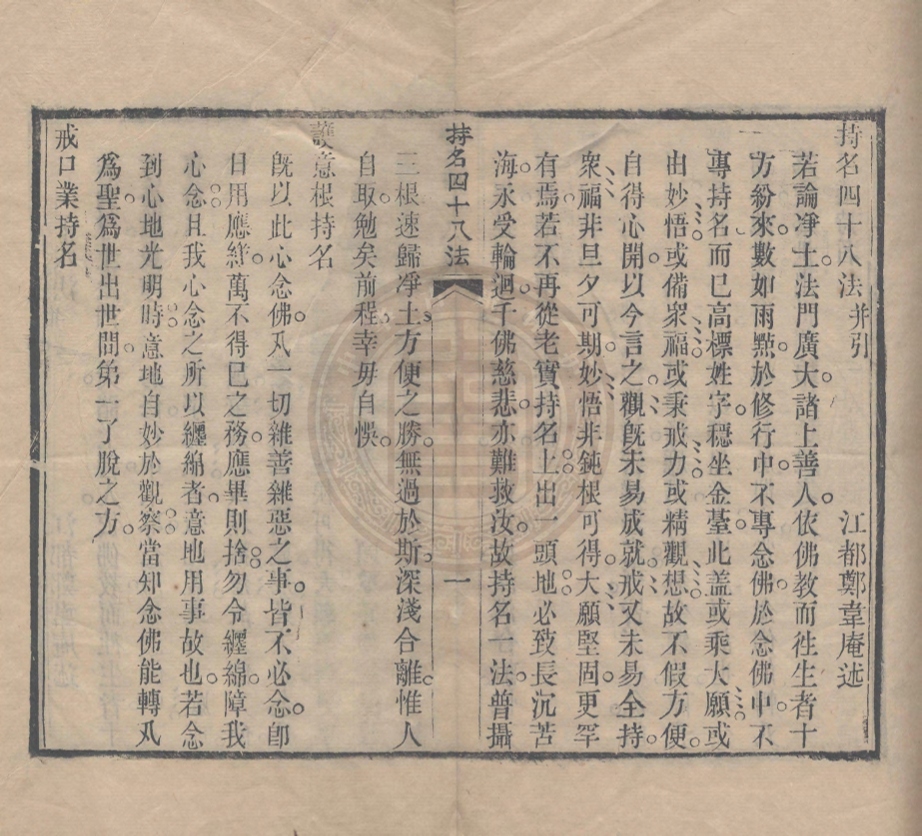 持名四十八法并引 江都鄭韋庵述
若論淨土法門廣大諸上善人依佛教而徃生者十
方紛來數如雨㸃於修行中不專念佛於念佛中不
專持名而已高標姓字穩坐金䑓此盖或乘大願或
由妙悟或備衆福或秉戒力或精觀想故不假方便
自得心開以今言之觀旣未易成就戒又未易全持
衆福非旦夕可期妙悟非鈍根可得大願堅固更罕
有焉若不再從老實持名上出一頭地必致長沉苦
海永受輪迴千佛慈悲亦難救汝故持名一法普攝
持名四十八法 一
三根速歸淨土方便之勝無過於斯深淺合離惟人
自取勉矣前程幸毋自悞
護意根持名
旣以此心念佛凡一切雜善雜惡之事皆不必念卽
日用應緣萬不得已之務應畢則捨勿令纏綿障我
心念且我心念之所以纏綿者意地用事故也若念
到心地光明時意地自妙於觀察當知念佛能轉凡
爲聖爲世出世間第一了脫之方
戒口業持名